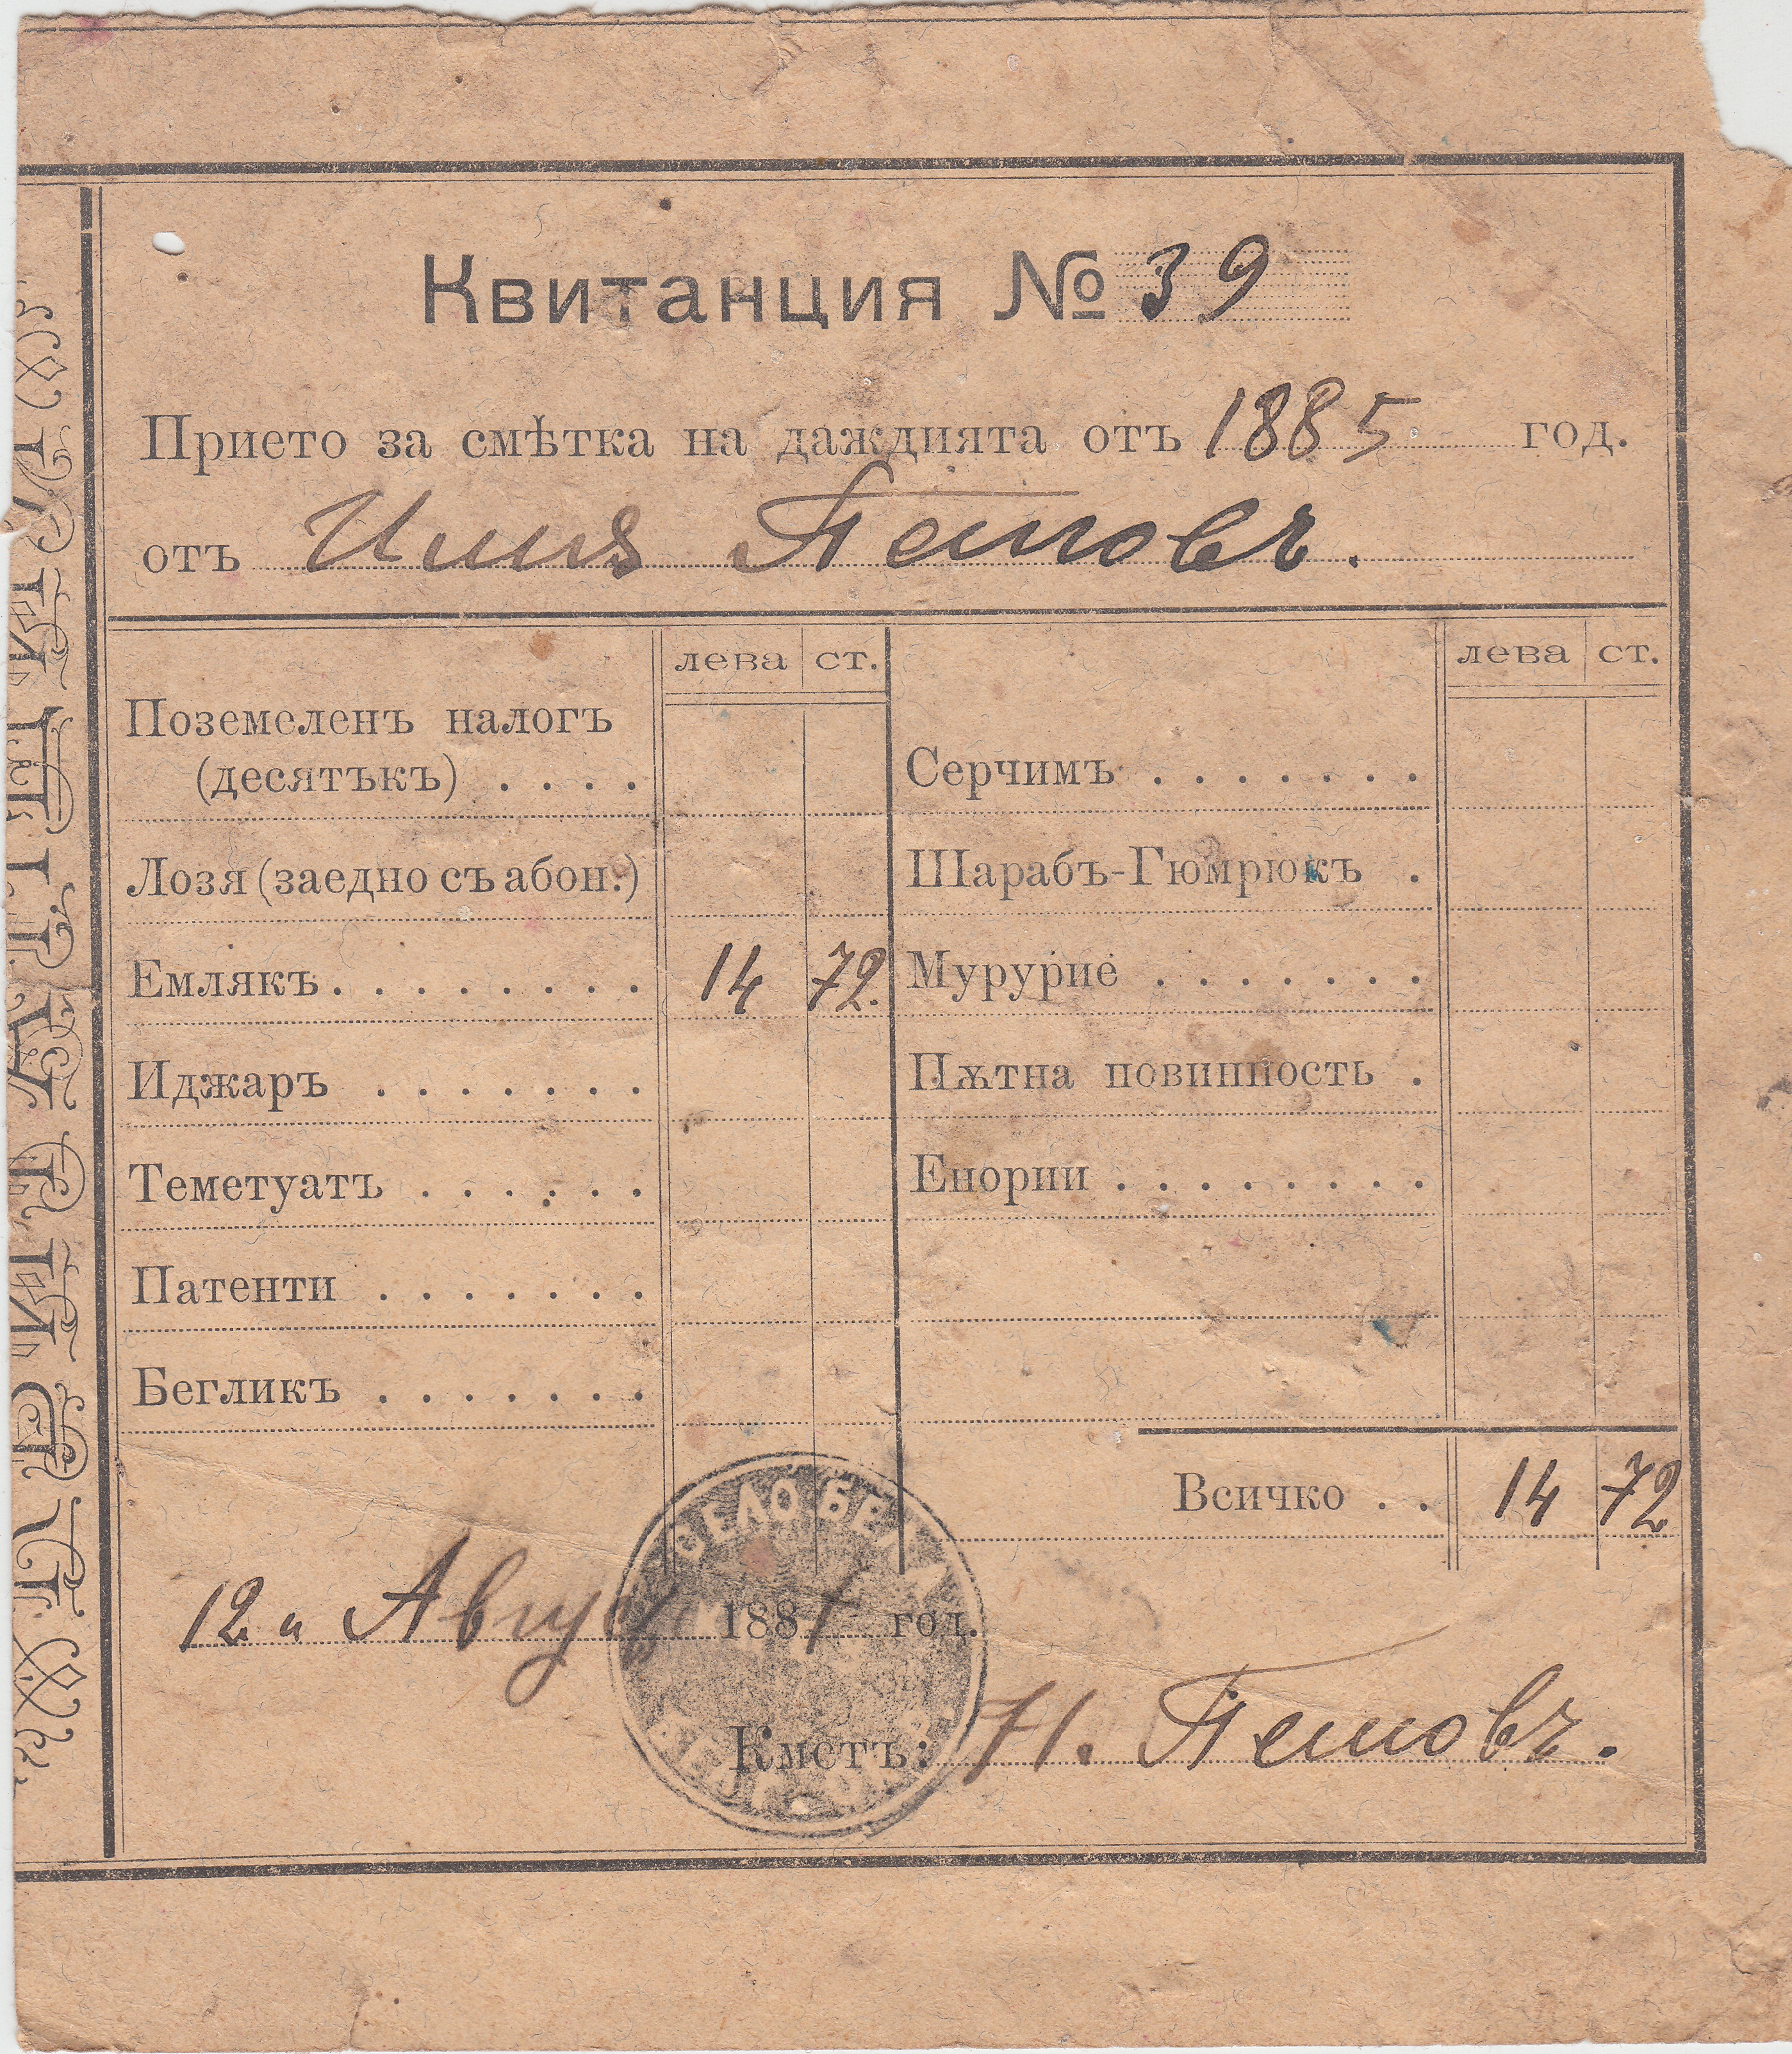 Квитанция № 39
Прието за смѣтка на даждията отъ 1885 год.
отъ Илия Петковъ.
лева ст.
лева ст.
Поземеленъ налогъ
(десятъкъ) . . . .
Серчимъ . . . . . . .
Лозя (заедно съ абон.)
Шарабъ-Гюмрюкъ .
Емлякъ . . . . . . . . 14 72.
Мурурие . . . . . . .
Иджаръ . . . . . . .
Пѫтна повинность .
Теметуатъ . . . . . .
Енории . . . . . . . .
Патенти . . . . . . .
Бегликъ . . . . . . .
Всичко . . 14 72
СЕЛО
12 й Авгус 188 год.
Кметъ: Н. Петковъ.